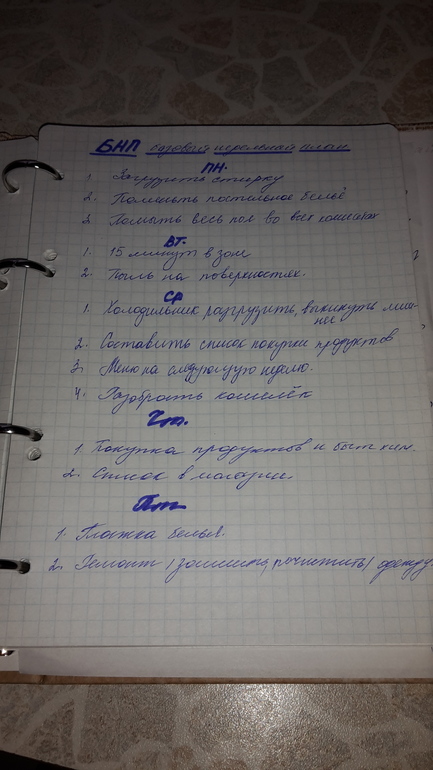 БНП базовый недельный план
ПН.
1. Загрузить стирку
2. Поменять постельное бельё
3. Помыть весь пол во всех комнатах
ВТ.
1. 15 минут в зоне
2. Пыль на поверхностях.
СР
1. Холодильник разгрузить, выкинуть лиш-
нее
2. Составить список покупки продуктов
3. Меню на следующую неделю.
4. Разобрать кошелёк
Чт.
1. Покупка продуктов и быт хим.
2. Список в магазин.
Пт
1. Глажка белья.
2. Ремонт (зашить, почистить) одежду.